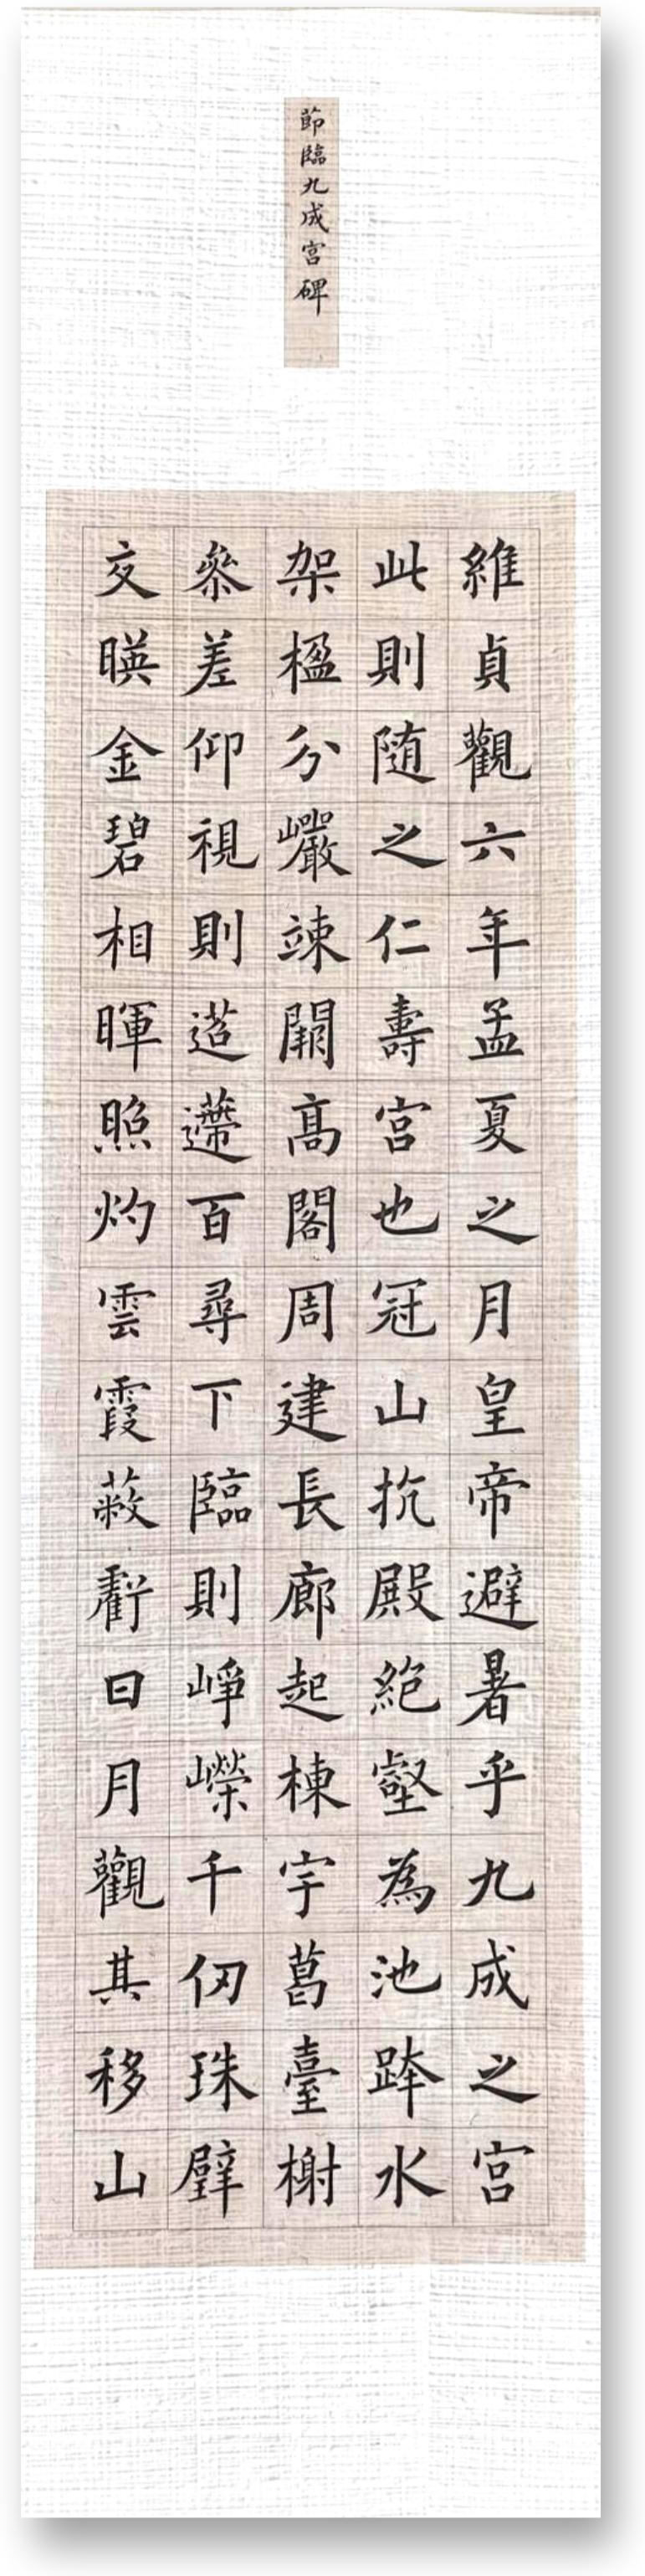 節臨九成宮碑
維貞觀六年孟夏之月皇帝避暑乎九成之宮
此則随之仁壽宮也冠山抗殿絶壑為池跨水
架楹分巗竦闕高閣周建長廊起棟宇葛臺榭
叅差仰視則迢遰百尋下臨則崢嶸千仞珠璧
交暎金碧相暉照灼雲霞蔽虧日月觀其移山